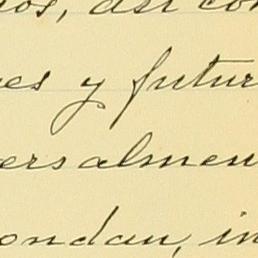 os, así co
es y futur
ersalmen
ondan, in